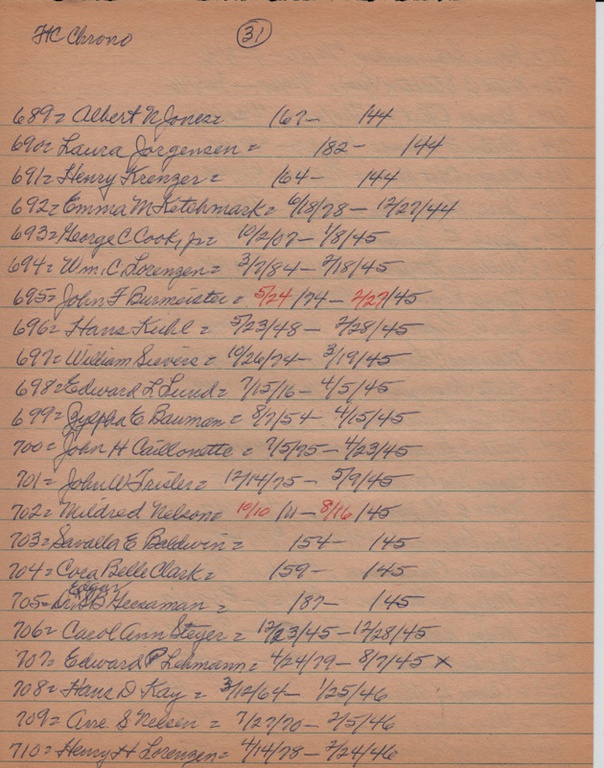 HC Chrono 31
689= Albert N Jones= /67- /44
690= Laura Jorgensen = /82- /44
691= Henry Krenzer= /64- /44
692= Emma M Ketchmark= 6/18/78- 12/27/44
693= George C Cook, Jr= 10/2/07- 1/8/45
694= Wm. C Lorenzen= 3/7/84- 2/18/45
695= John F Burmeister= 5/24/74- 2/27/45
696= Hans Kuhl= 5/23/48- 2/28/45
697= William Sievers= 10/26/74- 3/19/45
698= Edward L Lund= 7/15/16- 4/5/45
699= E Bauman= 8/7/54- 4/15/45
700= John H Caillonette= 7/5/75- 4/23/45
701= John W Frisler= 12/14/75- 5/9/45
702= Mildred Nelson= 10/10/11- 8/16/45
703= Savalla E Baldwin= /54- /45
704= Cora Belle Clark= /59- /45
Edgar
705= Dr. B Geesaman= /87- /45
706= Carol Ann Steger= 12/23/45-12/28/45
707= Edward P Lehmann= 4/24/79- 8/7/45 x
708= Hans D Kay= 3/12/64- 1/25/46
709= Arre S Nelsen= 7/27/70- 2/5/46
710= Henry H Lorenzen= 4/14/78- 2/24/46